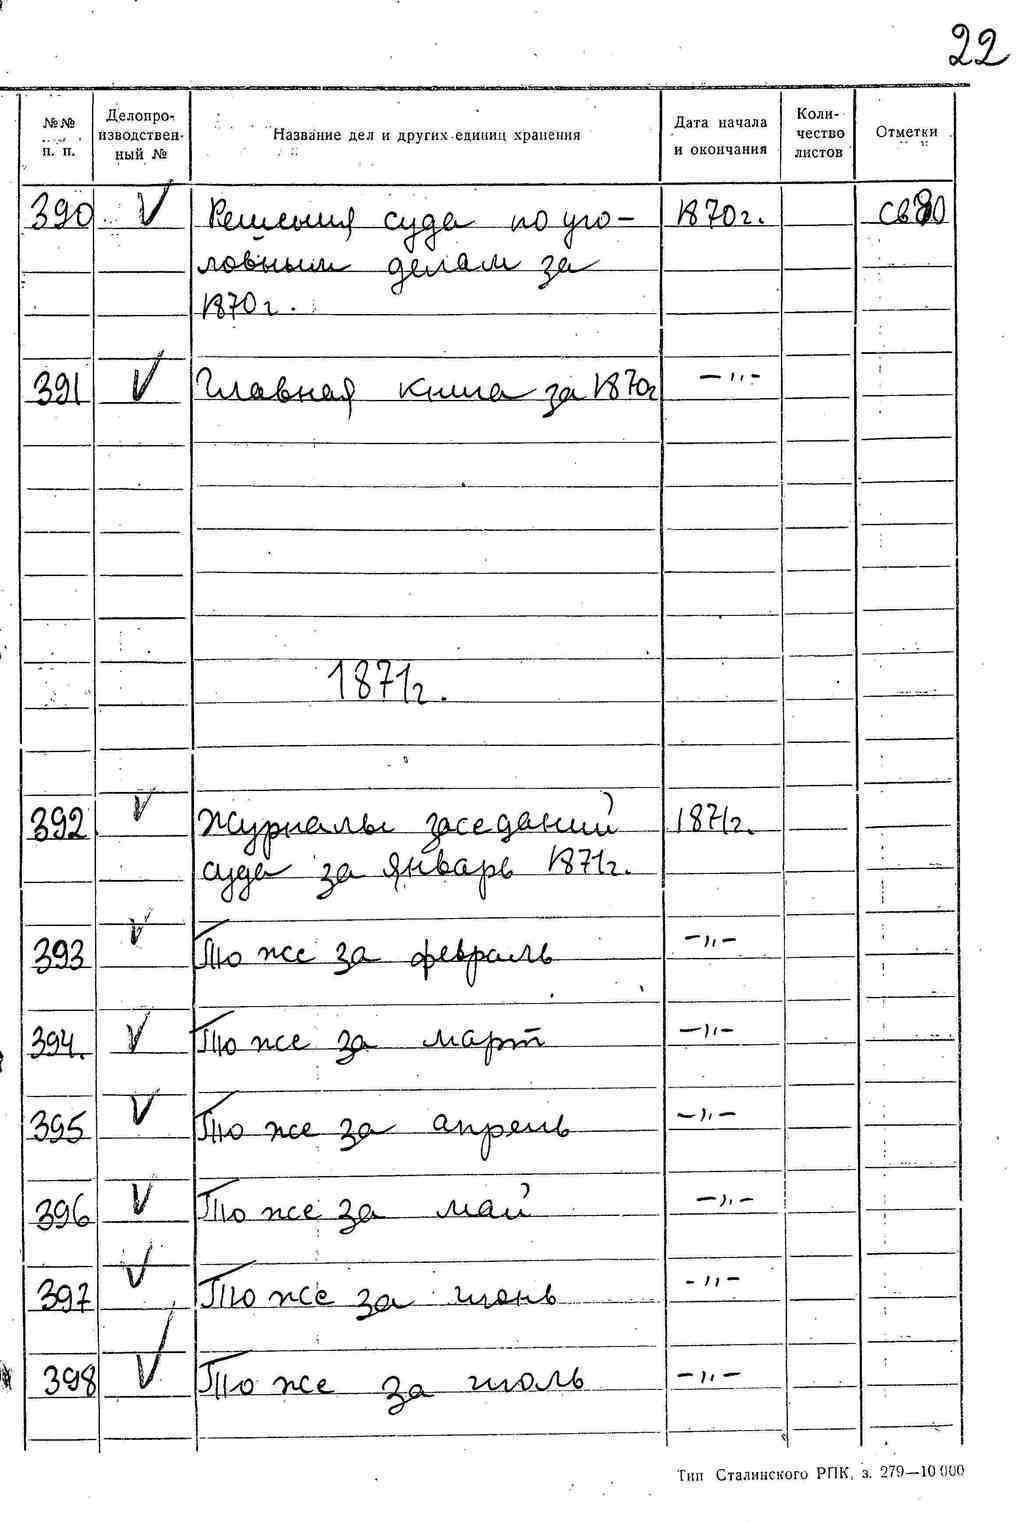 22
№№ п. п. Делопро-изводствен-ный № Название дел и других единиц хранения Дата начала и окончания Коли-чество листов Отметки
390 V Решения суда по уго- 1870г.
ловным делам за
1870г.
391 V Главная книга за 1870г -„-
1871г.
392 V Журналы заседаний 1871г.
суда за январь 1871г.
393 V То же за февраль -„-
394. V То же за март -„-
395 V То же за апрель -„-
396 V То же за май -„-
397 V То же за июнь -„-
398 V То же за июль -„-
Тип Сталинского РПК, з. 279—10 000